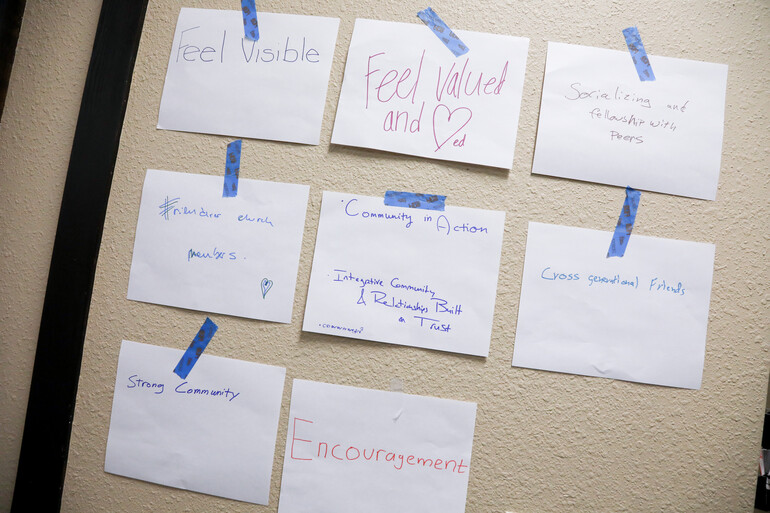 Feel Visible
Feel Valued
and ♡ed
Socializing and
fellowship with
Peeps
church
members.
Community in Action
Integrative Community
& Relationships Built
on Trust
Cross generational Friends
Strong Community
Encouragement